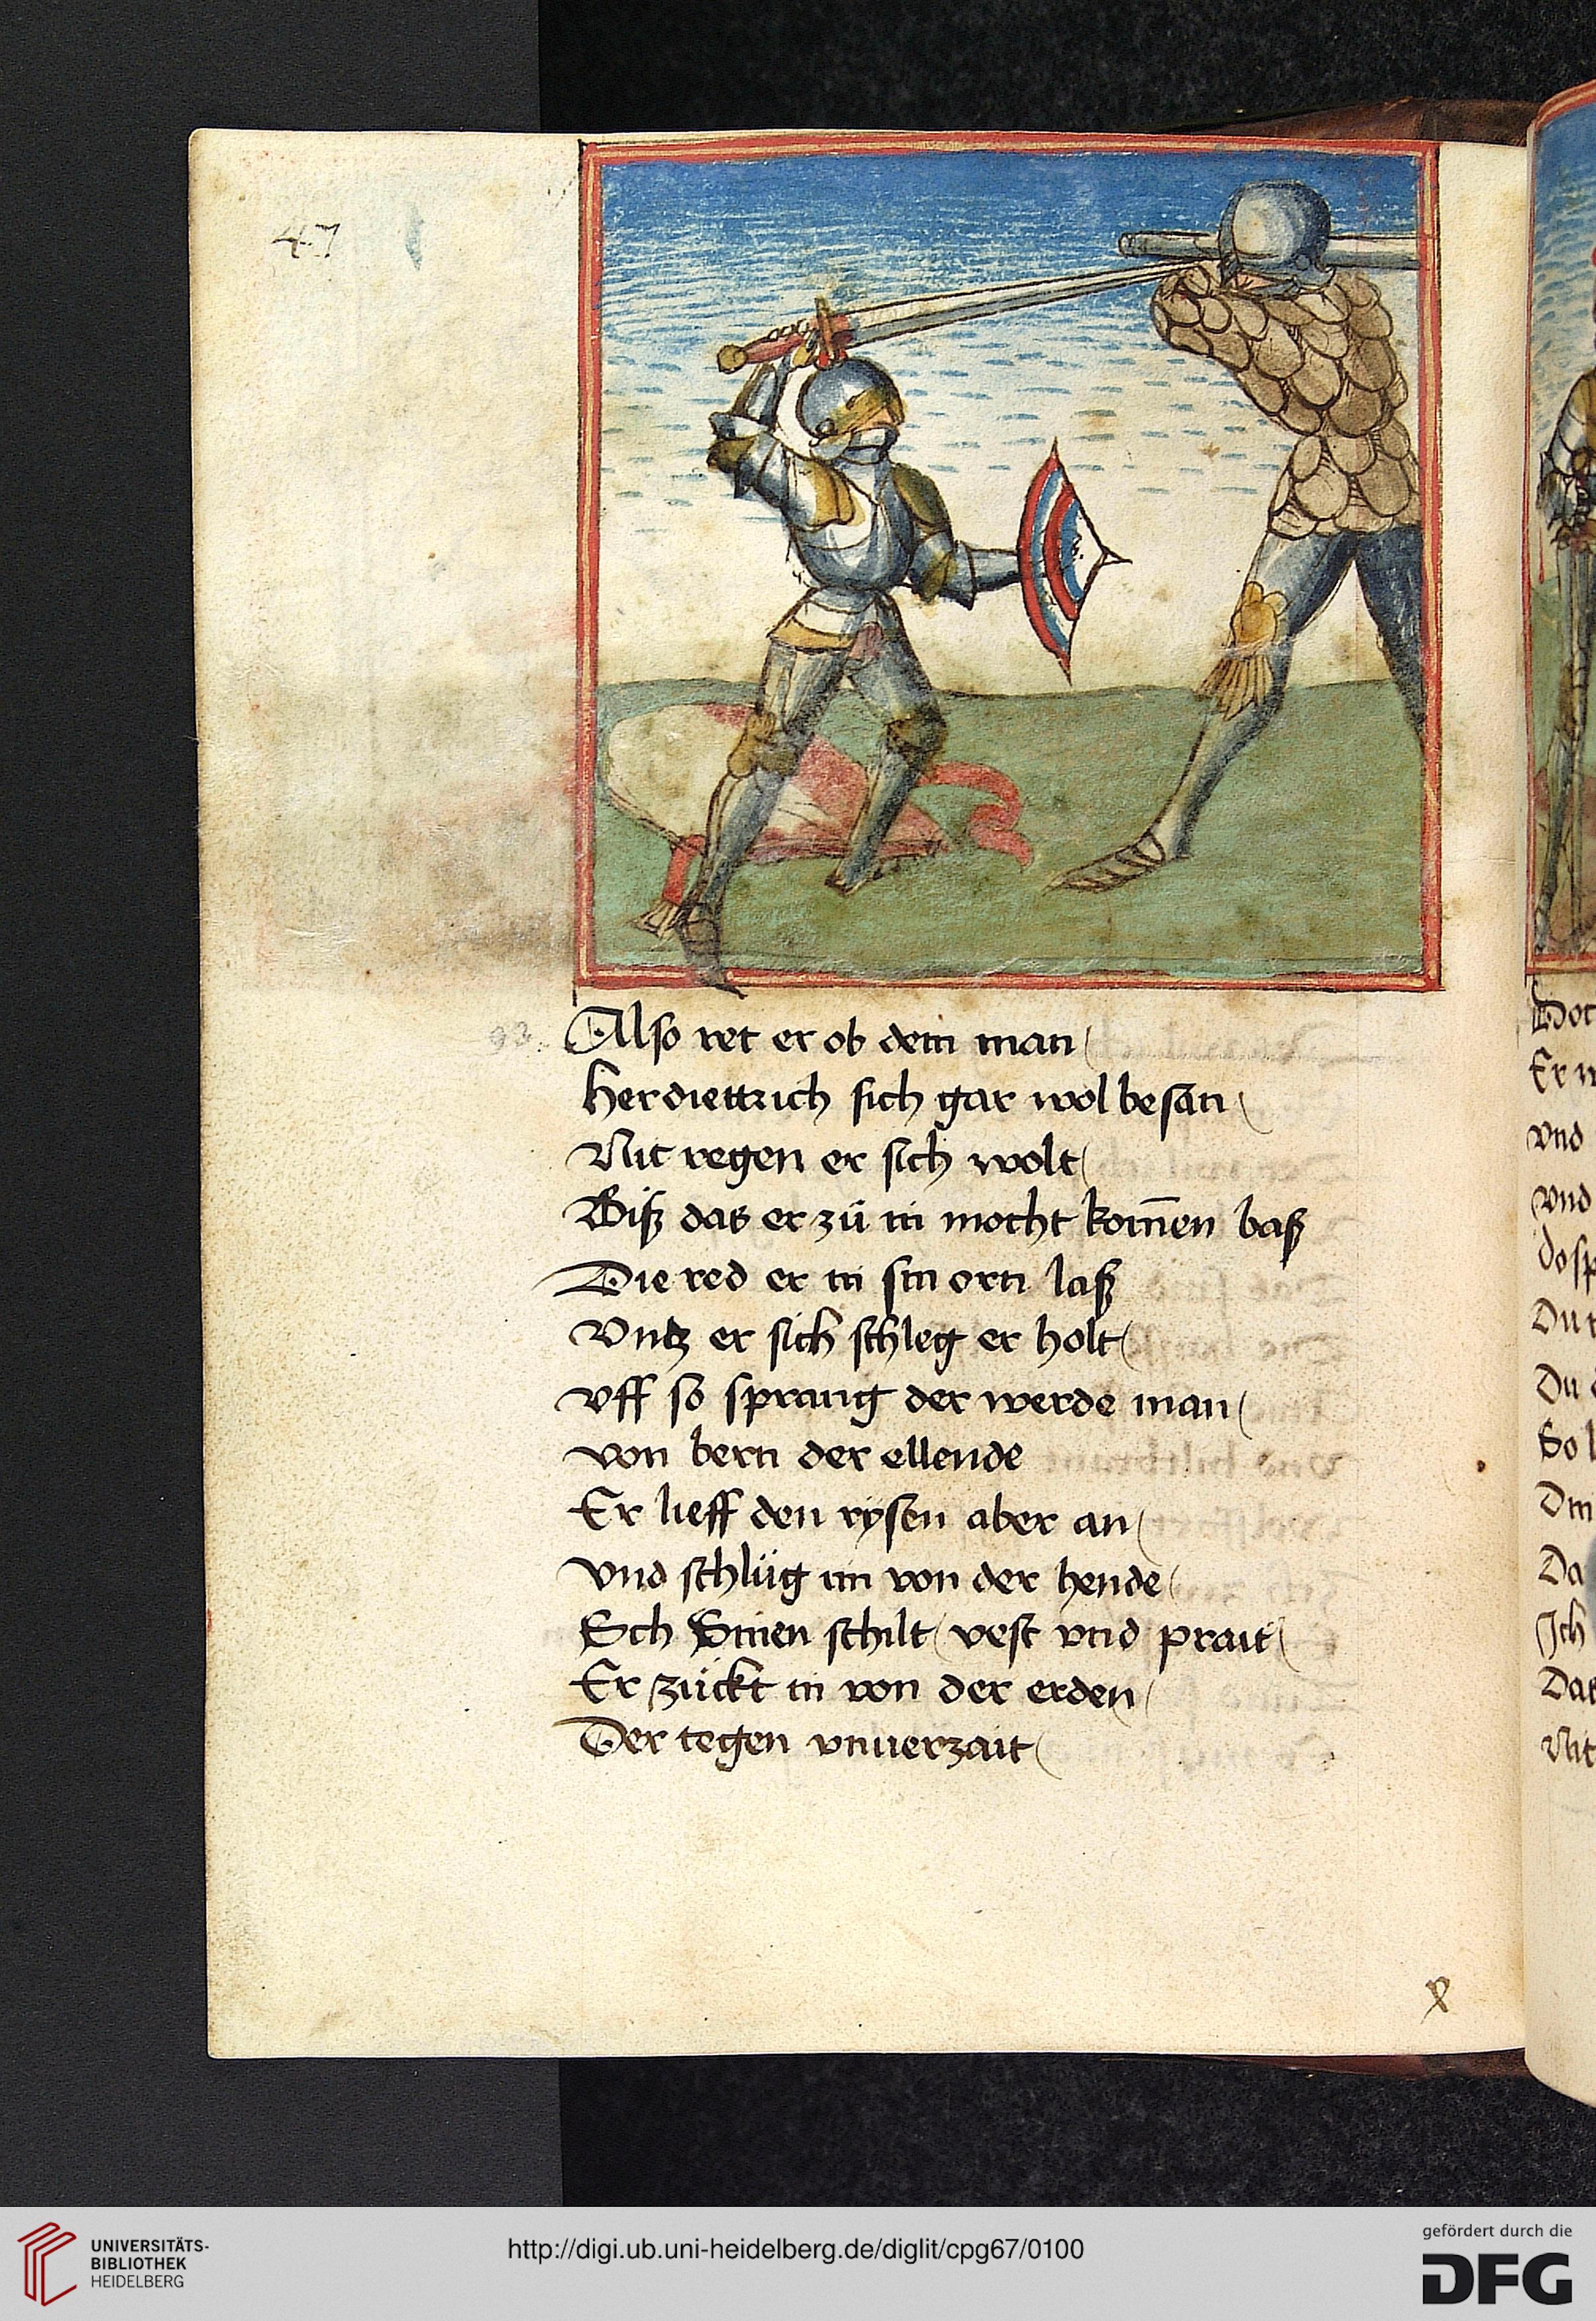 47
93.
Also ret er ob dem man
Her diettrich sich gar wol besan
Nit regen er sich wolt
Biß das er zů im mocht kom̄en baß
Die red er in sin orn laß
Vntz er sich schleg er holt
vff so sprang der werde man
von bern der ellende
Er lieff den rysen aber an
vnd schlůg im von der hende
Sch Sinen schilt vest vnd prait
Er zückt in von der erden
Der tegen vnuerzait
Er
vnd
vnd
Du
So
Da
Ich
Das
Nit
UNIVERSITÄTS-
BIBLIOTHEK
HEIDELBERG
http://digi.ub.uni-heidelberg.de/diglit/cpg67/0100
gefördert durch die
DFG